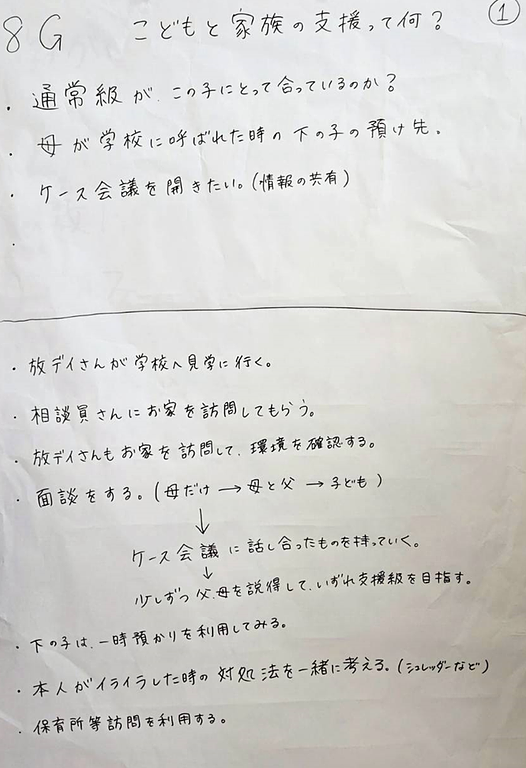 8G こどもと家族の支援って何? ①
・通常級が、この子にとって合っているのか?
・母が学校に呼ばれた時の下の子の預け先。
・ケース会議を開きたい。(情報の共有)
・
・放デイさんが学校へ見学に行く。
・相談員さんにお家を訪問してもらう。
・放デイさんもお家を訪問して、環境を確認する。
・面談をする。(母だけ→母と父→子ども)
↓
ケース会議に話し合ったものを持っていく。
↓
少しずつ父、母を説得して、いずれ支援級を目指す。
・下の子は、一時預かりを利用してみる。
・本人がイライラした時の対処法を一緒に考える。(シュレッダーなど)
・保育所等訪問を利用する。